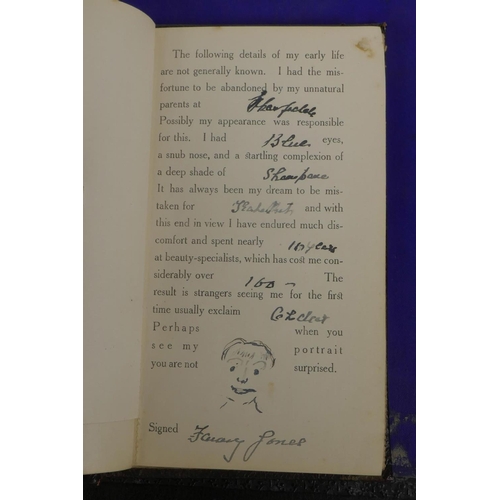 The following details of my early life
are not generally known. I had the mis-
fortune to be abandoned by my unnatural
parents at
Possibly my appearance was responsible
for this. I had Blue eyes,
a snub nose, and a startling complexion of
a deep shade of
It has always been my dream to be mis-
taken for and with
this end in view I have endured much dis-
comfort and spent nearly
at beauty-specialists, which has cost me con-
siderably over 160 – The
result is strangers seeing me for the first
time usually exclaim
Perhaps when you
see my portrait
you are not surprised.
Signed Jones